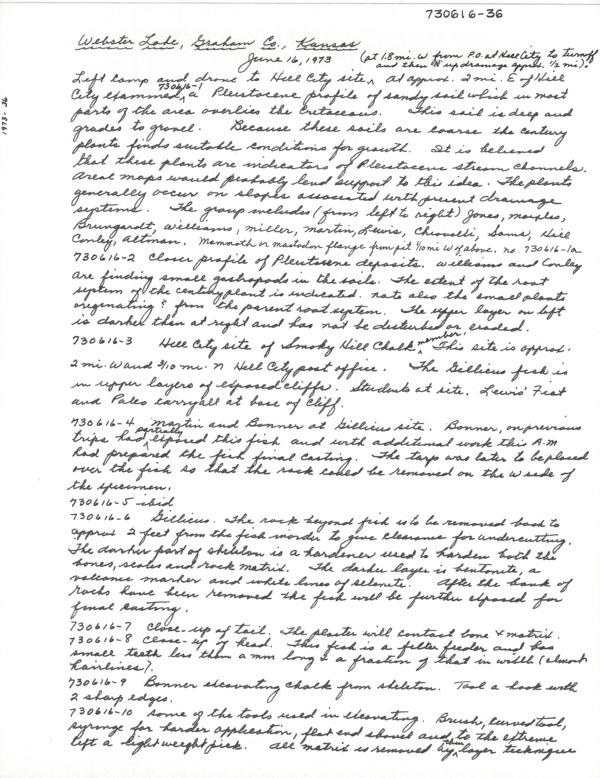 730616-36
1973-36
Webster Lake, Graham Co., Kansas
June 16, 1973 (at 1.8 mi. W from P.O. at Hill City to turnoff
and then N up drainage approx. 1/2 mi).
Left camp and drove to Hill City site. At approx. 2 mi. E of Hill
730616-1
City examined a Pleistocene profile of sandy soil which in most
parts of the area overlies the Cretaceous. This soil is deep and
grades to gravel. Because these soils are coarse the century
plants finds suitable conditions for growth. It is believed
that these plants are indicators of Pleistocene stream channels.
Areal maps would probably lend support to this idea. The plants
generally occur on slopes associated with present drainage
systems. The group includes (from left to right) Jones, Morales,
Brungardt, Williams, Miller, Martin, Lewis, Chiovelli, Sams, Hill
Conley, Altman. Mammoth or mastodon flange from pit 1/10 mi W of above. no. 730616-1a
730616-2 Closer profile of Pleistocene deposits. Williams and Conley
are finding small gastropods in the soils. The extent of the root
system of the century plant is indicated. Note also the small plants
originating? from the parent root system. The upper layer on left
is darker than at right and has not be disturbed or eroded.
730616-3 Hill City site of Smoky Hill Chalk member. This site is approx.
2 mi. W and 3/10 mi. N Hill City post office. The Gillicus fish is
in upper layers of exposed cliffs. Students at site, Lewis' Fiat
and Paleo carryall at base of cliff.
730616-4 Martin and Bonner at Gillicus site. Bonner, on previous
trips had partially exposed this fish and with additional work this A.M
had prepared the fish final casting. The tarp was later to be placed
over the fish so that the rock could be removed on the W side of
the specimen.
730616-5 ibid
730616-6 Gillicus. The rock beyond fish is to be removed back to
approx 2 feet from the fish in order to give clearance for undercutting.
The darker part of skeleton is a hardener used to harden both the
bones, scales and rock matrix. The darker layer is bentonite, a
volcanic marker and white lines of selenite. After the bank of
rocks have been removed the fish will be further exposed for
final casting.
730616-7 Close-up of tail. The plaster will contact bone & matrix.
730616-8 Close-up of head. This fish is a filter feeder and has
small teeth less than a mm long & a fraction of that in width (almost
hairlines).
730616-9 Bonner excavating chalk from skeleton. Tool a hook with
2 sharp edges.
730616-10 Some of the tools used in excavating. Brush, curved tool,
syringe for harder application, flat end shovel and to the extreme
left a lightweight pick. All matrix is removed by thin layer technique